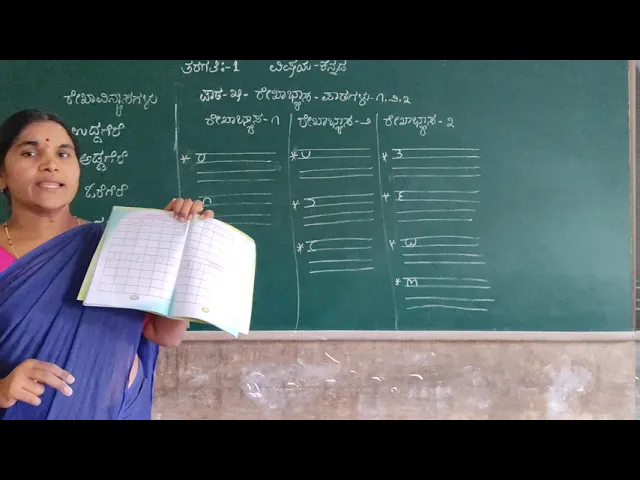 ತರಗತಿ:-1 ವಿಷಯ-ಕನ್ನಡ
ರೇಖಾವಿನ್ಯಾಸಗಳು
ಪಾಠ-೫- ರೇಖಾಭ್ಯಾಸ-ಪಾಠಗಳು-೧,೨,೩
ರೇಖಾಭ್ಯಾಸ-೧
ರೇಖಾಭ್ಯಾಸ-೨
ರೇಖಾಭ್ಯಾಸ-೩
ಉದ್ದಗೆರೆ
ಅಡ್ಡಗೆರೆ
ಓರೆಗೆರೆ